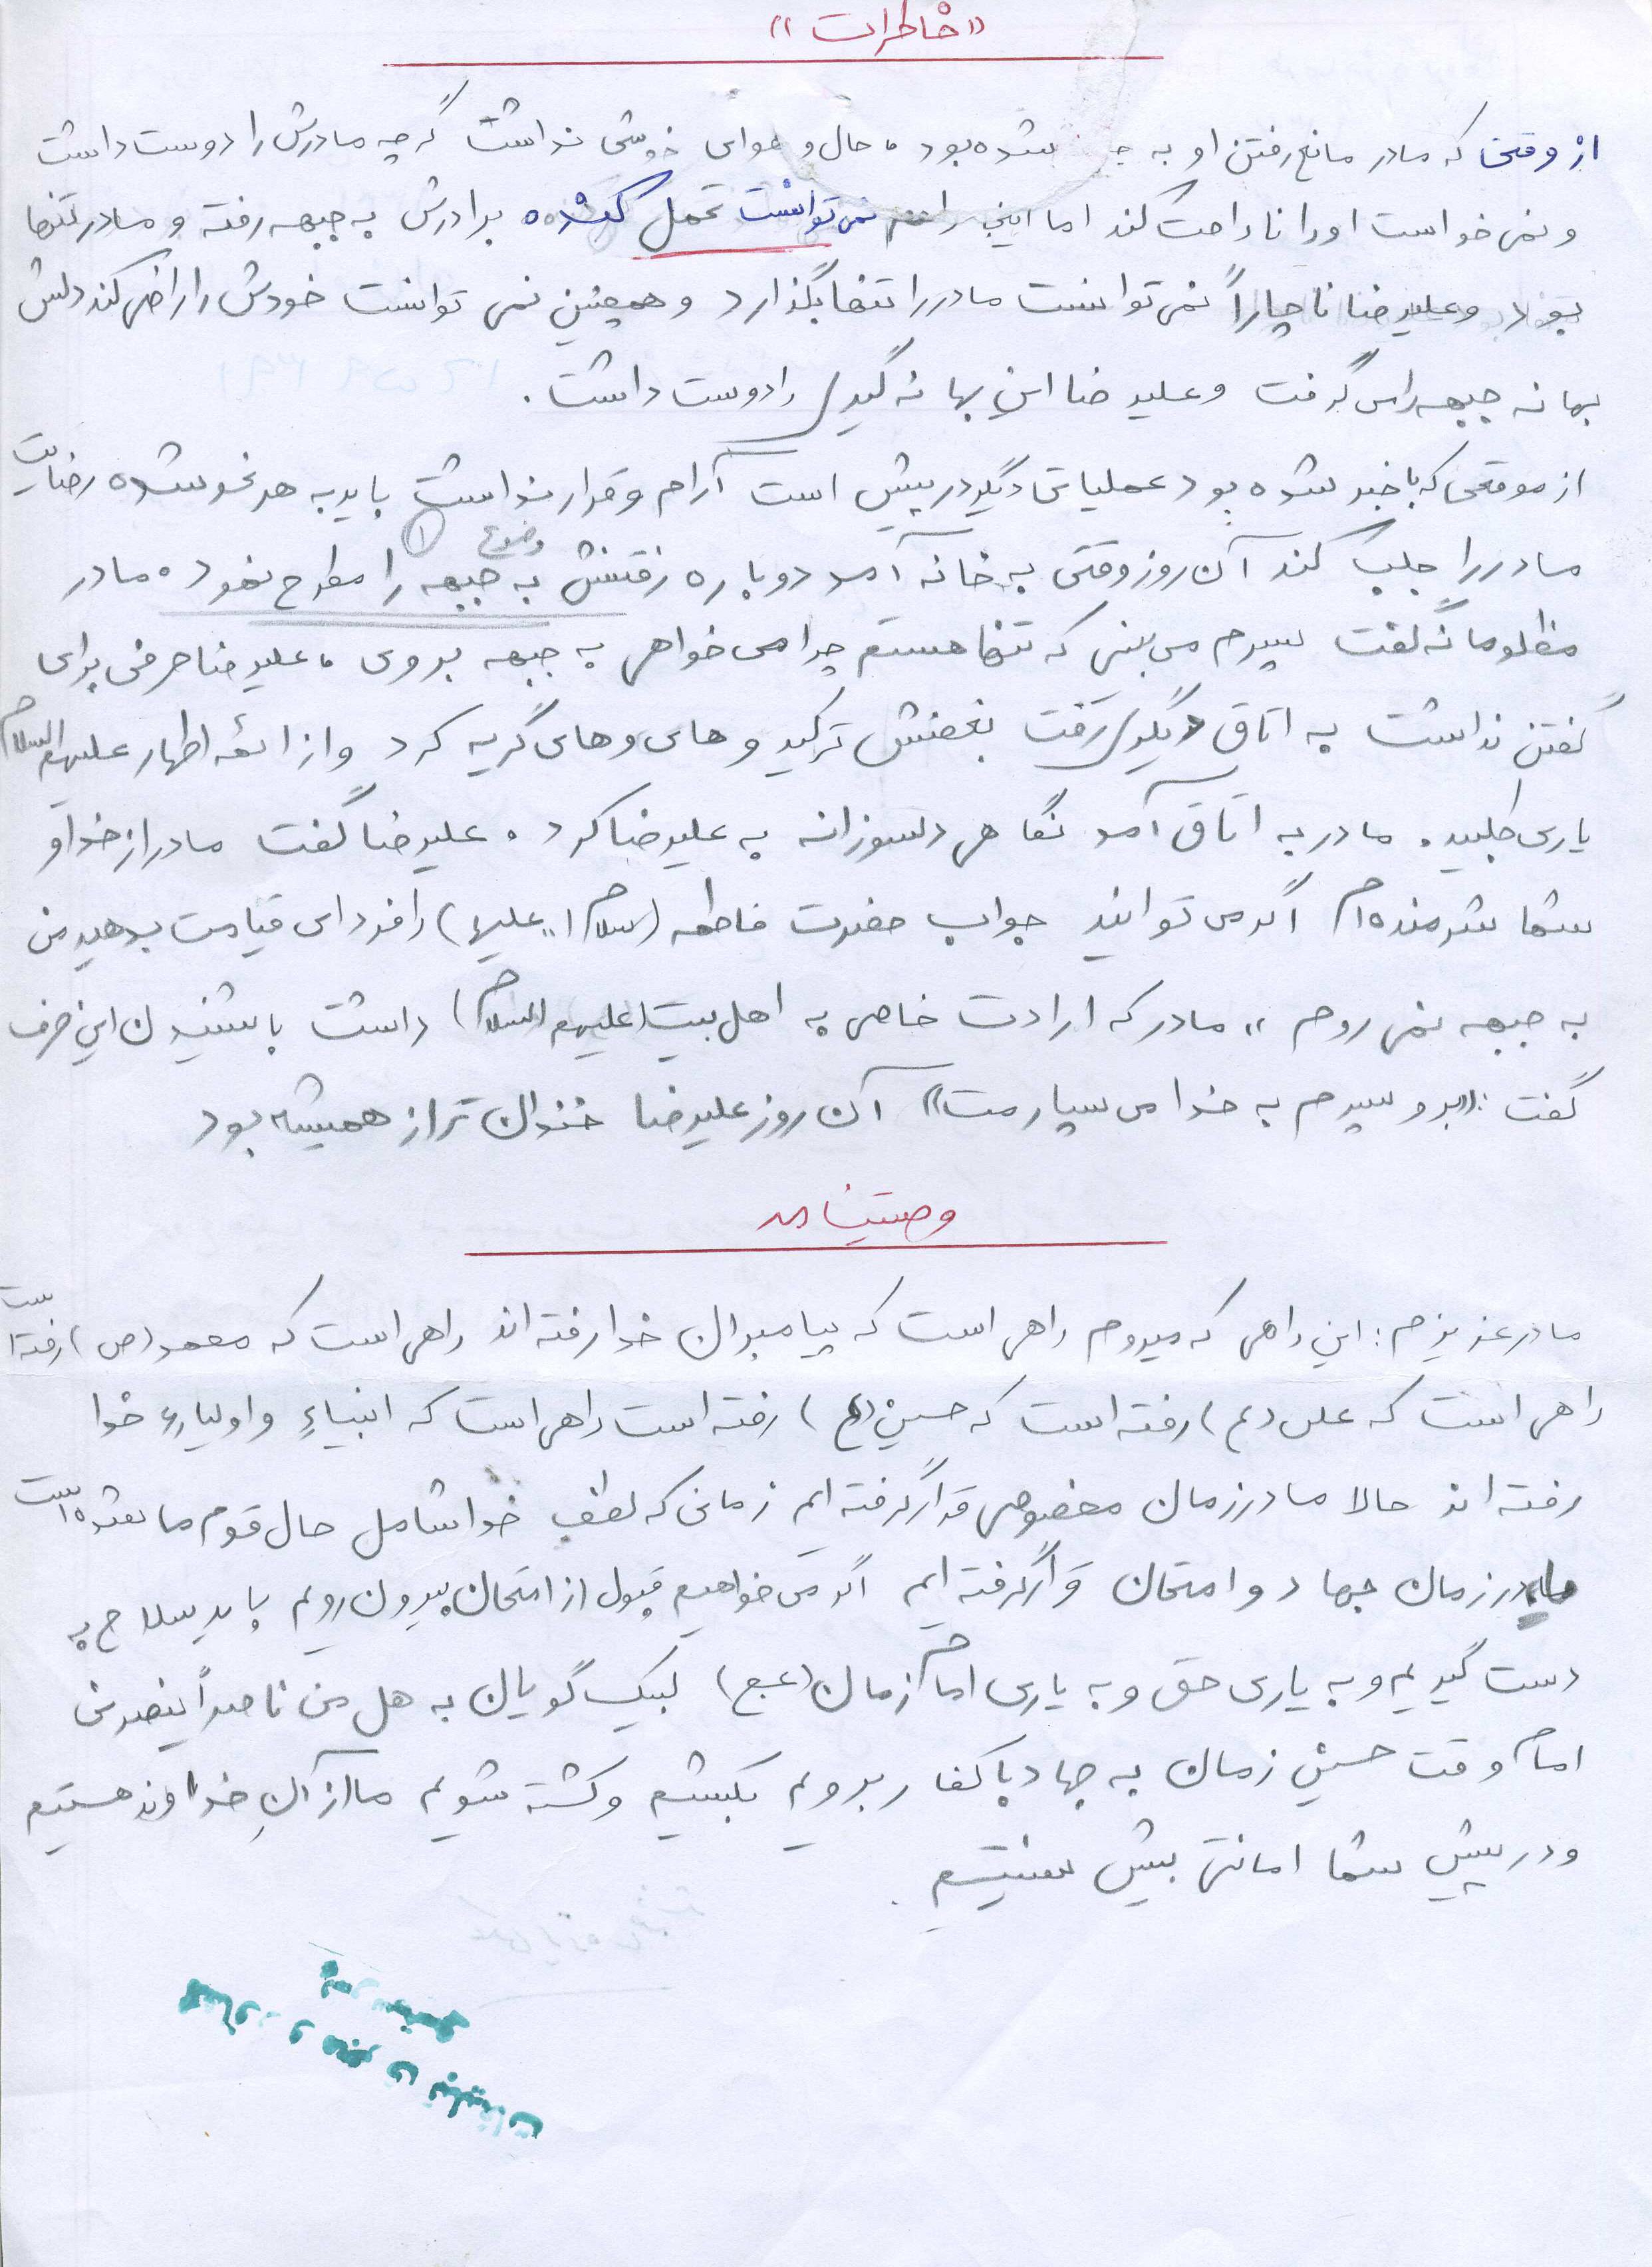 «خاطرات»
از وقتی که مادر مانع رفتن او به شده بود، حال و هوای خوشی نداشت گرچه مادرش را دوست داشت
و نمی خواست او را ناراحت کند اما اینجا را نمی توانست تحمل کند برادرش به جبهه رفته و مادر تنها
بود و علیرضا ناچاراً نمی توانست مادر را تنها بگذارد و همچنین نمی توانست خودش را راضی کند دلش
بهانه جبهه را می گرفت و علیرضا این بهانه گیری را دوست داشت.
از موقعی که با خبر شده بود عملیاتی دیگر در پیش است آرام و قرار نداشت باید به هر نحو شده رضایت
مادر را جلب کند آن روز وقتی به خانه آمد دوباره رفتنش به جبهه را مطرح نمود. مادر
مظلومانه گفت پسرم می بینی که تنها هستم چرا می خواهی به جبهه بروی، علیرضا حرفی برای
گفتن نداشت به اتاق دیگر رفت بغضش ترکید و های و های گریه کرد و از ائمه اطهار علیهم السلام
یاری طلبید. مادر به اتاق آمد نگاهی دلسوزانه به علیرضا کرد. علیرضا گفت مادر از خدا و
شما شرمنده ام اگر می توانید جواب حضرت فاطمه (سلام ا... علیها) را فردای قیامت بدهید من
به جبهه نمی روم» مادر که ارادت خاصی به اهل بیت (علیهم السلام) داشت با شنیدن این حرف
گفت: «برو پسرم به خدا می سپارمت» آن روز علیرضا خندان تر از همیشه بود
وصیتنامه
مادر عزیزم: این راهی که میروم راهی است که پیامبران خدا رفته اند راهی است که محمد (ص) رفته است
راهی است که علی (ع) رفته است که حسین (ع) رفته است راهی است که انبیاءِ و اولیاء خدا
رفته اند حالا ما در زمان مخصوصی قرار گرفته ایم زمانی که لطف خدا شامل حال قوم ما شده است
ما در زمان جهاد و امتحان قرار گرفته ایم اگر می خواهیم قبول از امتحان بیرون رویم باید سلاح به
دست گیریم و به یاری حق و به یاری امام زمان (عج) لبیک گویان به هل من ناصراً ینصرنی
امام وقت حسین زمان به جهاد با کفار برویم بکشیم و کشته شویم ما از آنِ خداوند هستیم
و در پیش شما امانتی بیش نیستیم.